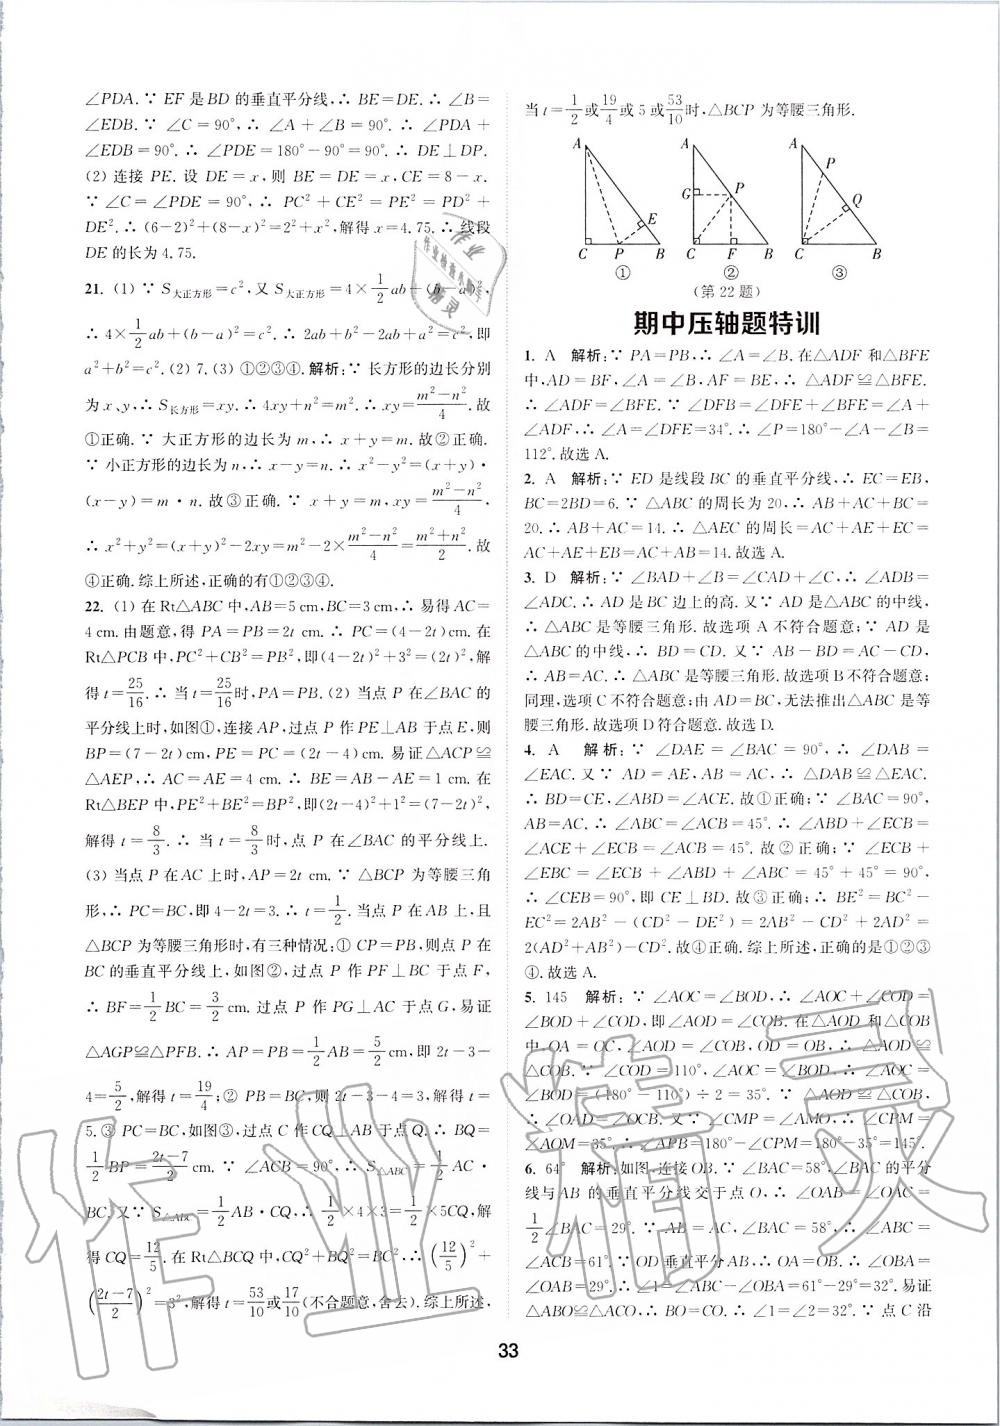 ∠PDA.∵ EF是BD的垂直平分线,∴ BE=DE.∴ ∠B=
∠EDB.∵ ∠C=90°,∴ ∠A+∠B=90°.∴ ∠PDA+
∠EDB=90°.∴ ∠PDE=180°-90°=90°.∴ DE⊥DP.
(2) 连接 PE.设 DE=x,则 BE=DE=x,CE=8-x.
∵ ∠C=∠PDE=90°,∴ PC²+CE²=PE²=PD²+
DE².∴ (6-2)²+(8-x)²=2²+x²,解得x=4.75.∴ 线段
DE的长为4.75.
21. (1) ∵ S大正方形=c²,又 S大正方形=4×1/2ab+(b-a)²,
∴ 4×1/2ab+(b-a)²=c².∴ 2ab+b²-2ab+a²=c²,即
a²+b²=c².(2) 7.(3) ①②③④.解析:∵ 长方形的边长分别
为x、y,∴ S长方形=xy.∴ 4xy+n²=m².∴ xy=(m²-n²)/4.故
①正确.∵ 大正方形的边长为m,∴ x+y=m.故②正确.
∵ 小正方形的边长为n,∴ x-y=n.∴ x²-y²=(x+y)·
(x-y)=m·n.故③正确.∵ x+y=m,xy=(m²-n²)/4,
∴ x²+y²=(x+y)²-2xy=m²-2×(m²-n²)/4=(m²+n²)/2.故
④正确.综上所述,正确的有①②③④.
22. (1) 在Rt△ABC中,AB=5 cm,BC=3 cm,∴ 易得AC=
4 cm.由题意,得PA=PB=2t cm.∴ PC=(4-2t)cm.在
Rt△PCB中,PC²+CB²=PB²,即(4-2t)²+3²=(2t)²,解
得t=25/16.∴ 当t=25/16时,PA=PB.(2) 当点P在∠BAC的
平分线上时,如图①,连接AP,过点P作PE⊥AB于点E,则
BP=(7-2t)cm,PE=PC=(2t-4)cm.易证△ACP≌
△AEP,∴ AC=AE=4 cm.∴ BE=AB-AE=1 cm.在
Rt△BEP中,PE²+BE²=BP²,即(2t-4)²+1²=(7-2t)²,
解得t=8/3.∴ 当t=8/3时,点P在∠BAC的平分线上.
(3) 当点P在AC上时,AP=2t cm.∵ △BCP为等腰三角
形,∴ PC=BC,即4-2t=3.∴ t=1/2.当点P在AB上,且
△BCP为等腰三角形时,有三种情况:① CP=PB,则点P在
BC的垂直平分线上,如图②,过点P作PF⊥BC于点F,
∴ BF=1/2BC=3/2 cm.过点P作PG⊥AC于点G,易证
△AGP≌△PFB.∴ AP=PB=1/2AB=5/2 cm,即2t-3-
4=5/2,解得t=19/4;② PB=BC,则2t-3-4=3,解得t=
5.③ PC=BC,如图③,过点C作CQ⊥AB于点Q.∴ BQ=
1/2BP=(2t-7)/2.∵ ∠ACB=90°,∴ S△ABC=1/2AC·
BC.又∵ S△ABC=1/2AB·CQ,∴ 1/2×4×3=1/2×5CQ,解
得CQ=12/5.在Rt△BCQ中,CQ²+BQ²=BC².∴ (12/5)²+
((2t-7)/2)²=3²,解得t=53/10或17/10(不合题意,舍去).综上所述,
当t=1/2或19/4或5或53/10时,△BCP为等腰三角形.
A
E
C
P
B
①
A
G
P
C
F
B
②
A
P
Q
C
B
③
(第22题)
期中压轴题特训
1. A 解析:∵ PA=PB,∴ ∠A=∠B.在△ADF和△BFE
中,AD=BF,∠A=∠B,AF=BE,∴ △ADF≌△BFE.
∴ ∠ADF=∠BFE.∵ ∠DFB=∠DFE+∠BFE=∠A+
∠ADF,∴ ∠A=∠DFE=34°.∴ ∠P=180°-∠A-∠B=
112°.故选A.
2. A 解析:∵ ED是线段BC的垂直平分线,∴ EC=EB,
BC=2BD=6.∵ △ABC的周长为20,∴ AB+AC+BC=
20.∴ AB+AC=14.∴ △AEC的周长=AC+AE+EC=
AC+AE+EB=AC+AB=14.故选A.
3. D 解析:∵ ∠BAD+∠B=∠CAD+∠C,∴ ∠ADB=
∠ADC.∴ AD是BC边上的高.又∵ AD是△ABC的中线,
∴ △ABC是等腰三角形.故选项A不符合题意;∵ AD是
△ABC的中线,∴ BD=CD.又∵ AB-BD=AC-CD,
∴ AB=AC.∴ △ABC是等腰三角形.故选项B不符合题意;
同理,选项C不符合题意;由AD=BC,无法推出△ABC是等
腰三角形.故选项D符合题意.故选D.
4. A 解析:∵ ∠DAE=∠BAC=90°,∴ ∠DAB=
∠EAC.又∵ AD=AE,AB=AC,∴ △DAB≌△EAC.
∴ BD=CE,∠ABD=∠ACE.故①正确;∵ ∠BAC=90°,
AB=AC,∴ ∠ABC=∠ACB=45°.∴ ∠ABD+∠ECB=
∠ACE+∠ECB=∠ACB=45°.故②正确;∵ ∠ECB+
∠EBC=∠ECB+∠ABD+∠ABC=45°+45°=90°,
∴ ∠CEB=90°,即CE⊥BD.故③正确;∴ BE²=BC²-
EC²=2AB²-(CD²-DE²)=2AB²-CD²+2AD²=
2(AD²+AB²)-CD².故④正确.综上所述,正确的是①②③
④.故选A.
5. 145 解析:∵ ∠AOC=∠BOD,∴ ∠AOC+∠COD=
∠BOD+∠COD,即∠AOD=∠COB.在△AOD和△COB
中,OA=OC,∠AOD=∠COB,OD=OB,∴ △AOD≌
△COB.∵ ∠COD=110°,∠AOC=∠BOD,∴ ∠AOC=
∠BOD=(180°-110°)÷2=35°.∵ △AOD≌△COB,
∴ ∠OAD=∠OCB.又∵ ∠CMP=∠AMO,∴ ∠CPM=
∠AOM=35°.∴ ∠APB=180°-∠CPM=180°-35°=145°.
6. 64° 解析:如图,连接OB.∵ ∠BAC=58°,∠BAC的平分
线与AB的垂直平分线交于点O,∴ ∠OAB=∠OAC=
1/2∠BAC=29°.∵ AB=AC,∠BAC=58°,∴ ∠ABC=
∠ACB=61°.∵ OD垂直平分AB,∴ OA=OB.∴ ∠OBA=
∠OAB=29°.∴ ∠1=∠ABC-∠OBA=61°-29°=32°.易证
△ABO≌△ACO,∴ BO=CO.∴ ∠1=∠2=32°.∵ 点C沿
33
作业精灵